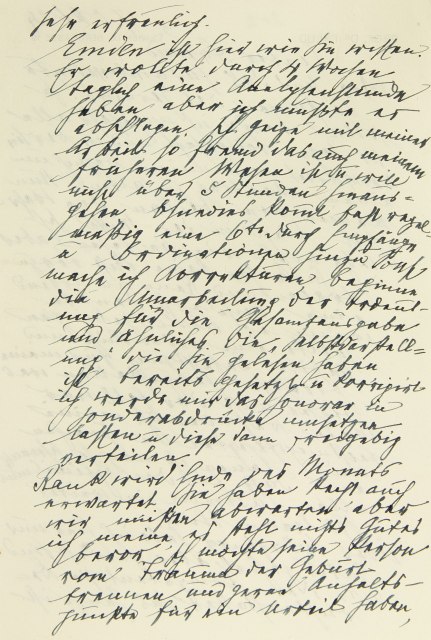 sehr erfreulich.
Emden ist hier wie Sie wissen.
Er wollte durch 4 Wochen
täglich eine Analysenstunde
haben aber ich mußte es
abschlagen. Ich geize mit meiner
Arbeit so fremd das auch meinem
früheren Wesen ist u will
nicht über 5 Stunden hinaus-
gehen. Ohnedies kommt fast regel
mäßig eine 6te durch Empfänge
u Ordinationen hinzu. Sonst
mache ich Korrekturen beginne
die Umarbeitung der Traumdeut-
ung für die Gesamtausgabe
und ähnliches. Die „Selbstdarstell-
ung" die Sie gelesen haben
ist bereits gesetzt u korrigirt
Ich werde mir das Honorar in
Sonderabdrücke umsetzen
lassen u diese dann freigebig
verteilen.
Rank wird Ende des Monats
erwartet Sie haben Recht auch
wir müßen abwarten aber
ich meine es steht nichts Gutes
bevor. Ich möchte seine Person
vom Trauma der Geburt
trennen und gerne Anhalts-
punkte für ein Urteil haben,